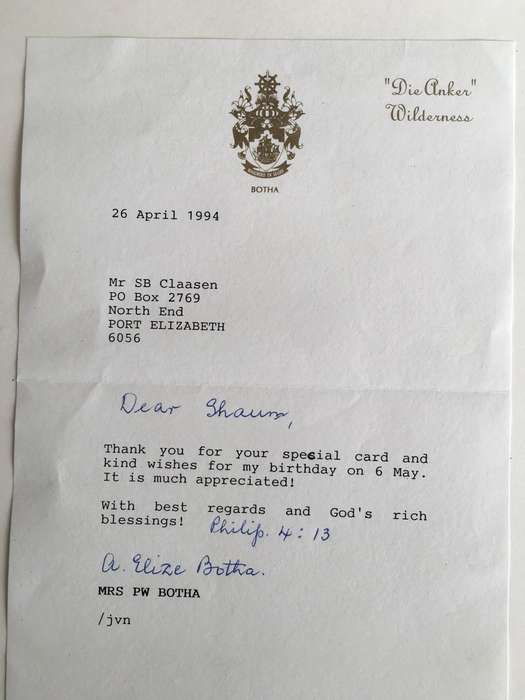 "Die Anker"
Wilderness
BOTHA
26 April 1994
Mr SB Claasen
PO Box 2769
North End
PORT ELIZABETH
6056
Dear Shaun,
Thank you for your special card and
kind wishes for my birthday on 6 May.
It is much appreciated!
With best regards and God's rich
blessings! Philip. 4:13
A. Elize Botha.
MRS PW BOTHA
/jvn